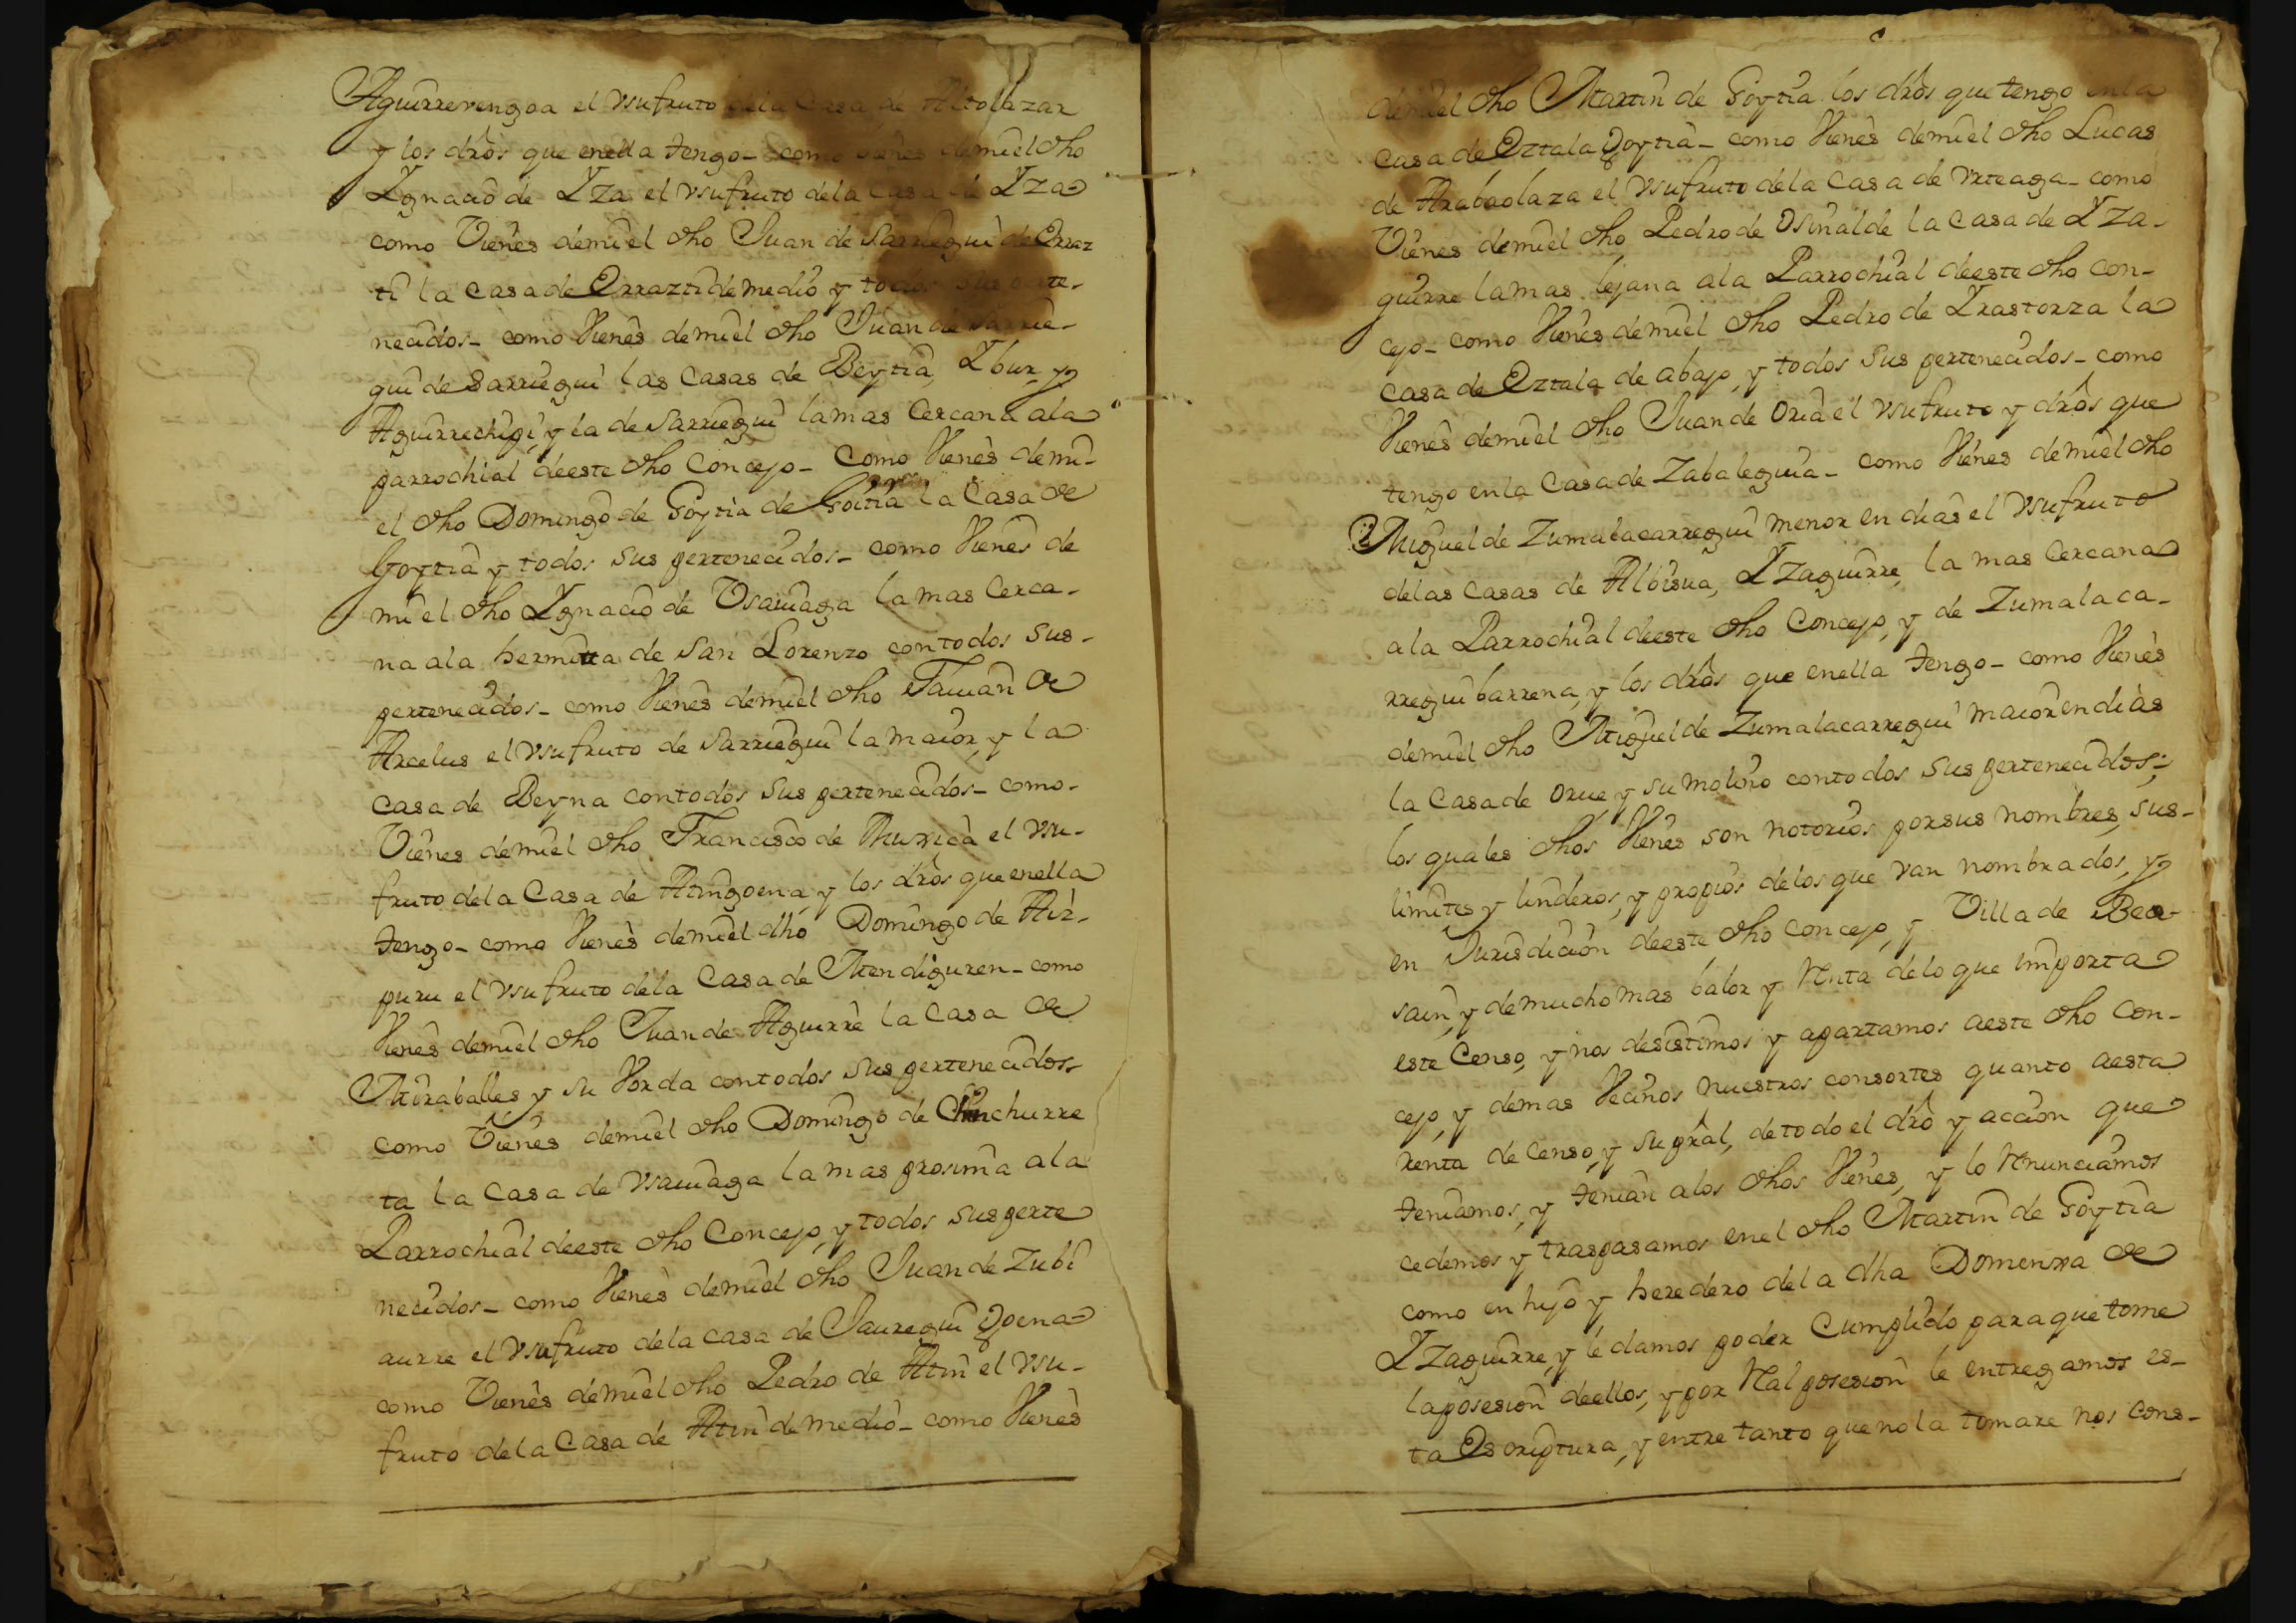 Aguirrevengoa el vsufruto dela Casa de Altolazar
y los drôs que enella tengo - como vienes demiel dho
Ygnacio de Yza el vsufruto dela Casa de Yza
como Vienes demiel dho Juan de Sarriegui de Erraz
ti la Casa de Erraztidemedio y todos sus perte-
necidos - como Vienes demiel dho Juan de Sarrie-
gui de Sarriegui las Casas de Beytia, Ybur, y
Aguirrechigi, y la de Sarriegui lamas Cercana ala
parrochial deeste dho Concejo - Como Vienes demi-
el dho Domingo de Goytia de Goitia la Casa de
Goytia y todos sus pertenecidos - como Vienes de
mi el dho Ygnacio de Vsauiaga la mas Cerca-
na ala hermitta de San Lorenzo con todos sus-
pertenecidos - como Vienes demiel dho Damian de
Arcelus el vsufruto de Sarriegui la maior, y la
casa de Beyna contodos sus pertenecidos - como-
Vienes demiel dho Francisco de Murxica el vsu-
fruto dela Casa de Atingoena, y los drôs que enella
tengo - como Vienes demiel dho Domingo de Aiz-
puru el vsufruto dela Casa de Mendiguren - como
Vienes demiel dho Juan de Aguirre la Casa de
Miraballes y su Vorda contodos sus pertenecidos
como Vienes demiel dho Domingo de Chinchurre
ta la Casa de Vsauiaga la mas prosima ala
Parrochial deeste dho Concejo, y todos sus perte
necidos - como Vienes demiel dho Juan de Zubi
aurre el vsufruto dela casa de Jauregui Goena
como Vienes demiel dho Pedro de Atin el vsu-
fruto dela Casa de Atin de medio - como Vienes
demiel dho Martin de Goytia los drôs que tengo enla
casa de Eztala Goytia - como Vienes demiel dho Lucas
de Arabaolaza el vsufruto dela Casa de Vrteaga - como
Vienes demiel dho Pedro de Osinalde la Casa de Yza-
guirre lamas lejana ala Parrochial deeste dho Con-
cejo - como Vienes demiel dho Pedro de Yrastorza la
casa de Eztala de abajo, y todos sus pertenecidos - como
Vienes demiel dho Juan de Oria el vsufruto y drôs que
tengo enla Casa de Zabaleguia - como Vienes demiel dho
Miguel de Zumalacarregui menor en dias el vsufruto
delas Casas de Albisua, Yzaguirre, la mas Cercana
ala Parrochial deeste dho Concejo, y de Zumalaca-
rregui barrena, y los drôs que enella tengo - como Vienes
demiel dho Miguel de Zumalacarregui maior en dias
la Casa de Orue, y su molino contodos sus pertenecidos;
los quales dhos Vienes son notorios porsus nombres, sus-
limites y linderos, y propios delos que van nombrados, y
en Jurisdicion deeste dho Concejo, y Villa de Bea-
sain, y de mucho mas balor y Renta delo que importa
este Censo, y nos desistimos y apartamos aeste dho Con-
cejo, y demas Vecinos nuestros consortes quanto aesta
Renta de Censo, y su pral, de todo el drô y accion que
teniamos, y tenian alos dhos Vienes, y lo Renunciamos
cedemos y traspasamos enel dho Martin de Goytia
como en hijo y heredero dela dha Domenxa de
Yzaguirre, y le damos poder Cumplido para que tome
la posesion deellos, y por Real posesion le entregamos es-
ta Escriptura, y entre tanto que no la tomare nos cons-